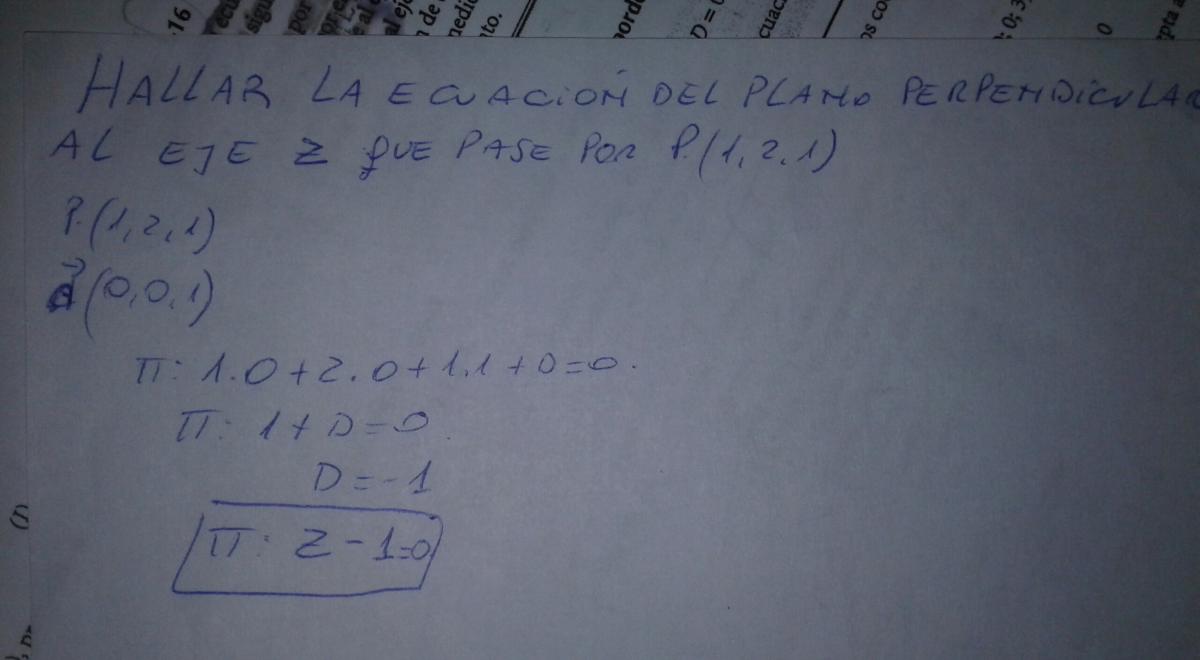 16
HALLAR LA ECUACIÓN DEL PLANO PERPENDICULAR
AL EJE Z QUE PASE POR P.(1,2,1)
P.(1,2,1)
(0,0,1)
π: 1.0+2.0+1.1+D=0.
π: 1+D=0.
D=-1
π: Z-1=0